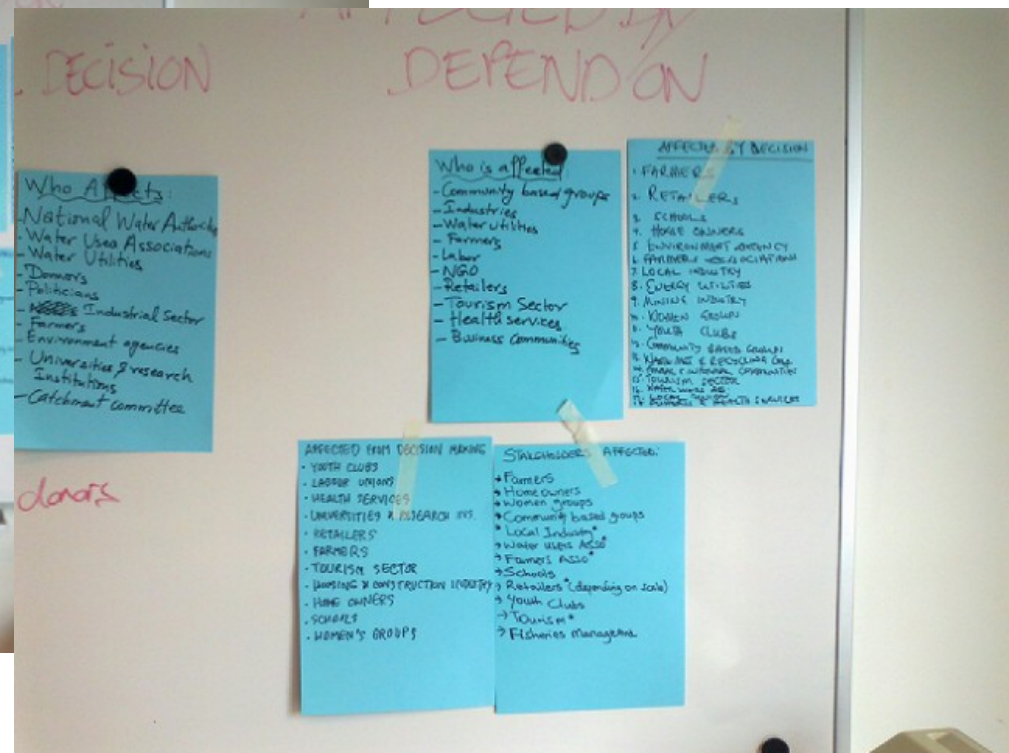 DECISION
AFFECTED BY
DEPEND ON
Who Affects:
- National Water Authority
- Water Uses Associations
- Water Utilities
- Donors
- Politicians
- Industrial Sector
- Farmers
- Environment agencies
- Universities & research
Institutions
- Catchment committee
donors
Who is affected:
- Community based groups
- Industries
- Water utilities
- Farmers
- Labor
- NGO
- Retailers
- Tourism Sector
- Health services
- Business communities
AFFECTED BY DECISION
1. FARMERS
2. RETAILERS
3. SCHOOLS
4. HOME OWNERS
5. ENVIRONMENT AGENCY
6. FARMERS ASSOCIATION
7. LOCAL INDUSTRY
8. ENERGY UTILITIES
9. MINING INDUSTRY
10. WOMEN GROUP
11. YOUTH CLUBS
12. COMMUNITY BASED GROUP
& RECYCLING
15. TOURISM SECTOR
& HEALTH SERVICES
AFFECTED FROM DECISION MAKING
· YOUTH CLUBS
· LABOUR UNIONS
· HEALTH SERVICES
· UNIVERSITIES & RESEARCH INS.
· RETAILERS
· FARMERS
· TOURISM SECTOR
· HOUSING & CONSTRUCTION INDUSTRY
· HOME OWNERS
· SCHOOLS
· WOMEN'S GROUPS
STAKEHOLDERS AFFECTED:
→ Farmers
→ Homeowners
→ Women groups
→ Community based groups
* Local Industry*
→ Water users Asso*
→ Farmers Asso*
→ Schools
→ Retailers* (depending on scale)
→ Youth Clubs
→ Tourism*
→ Fisheries management